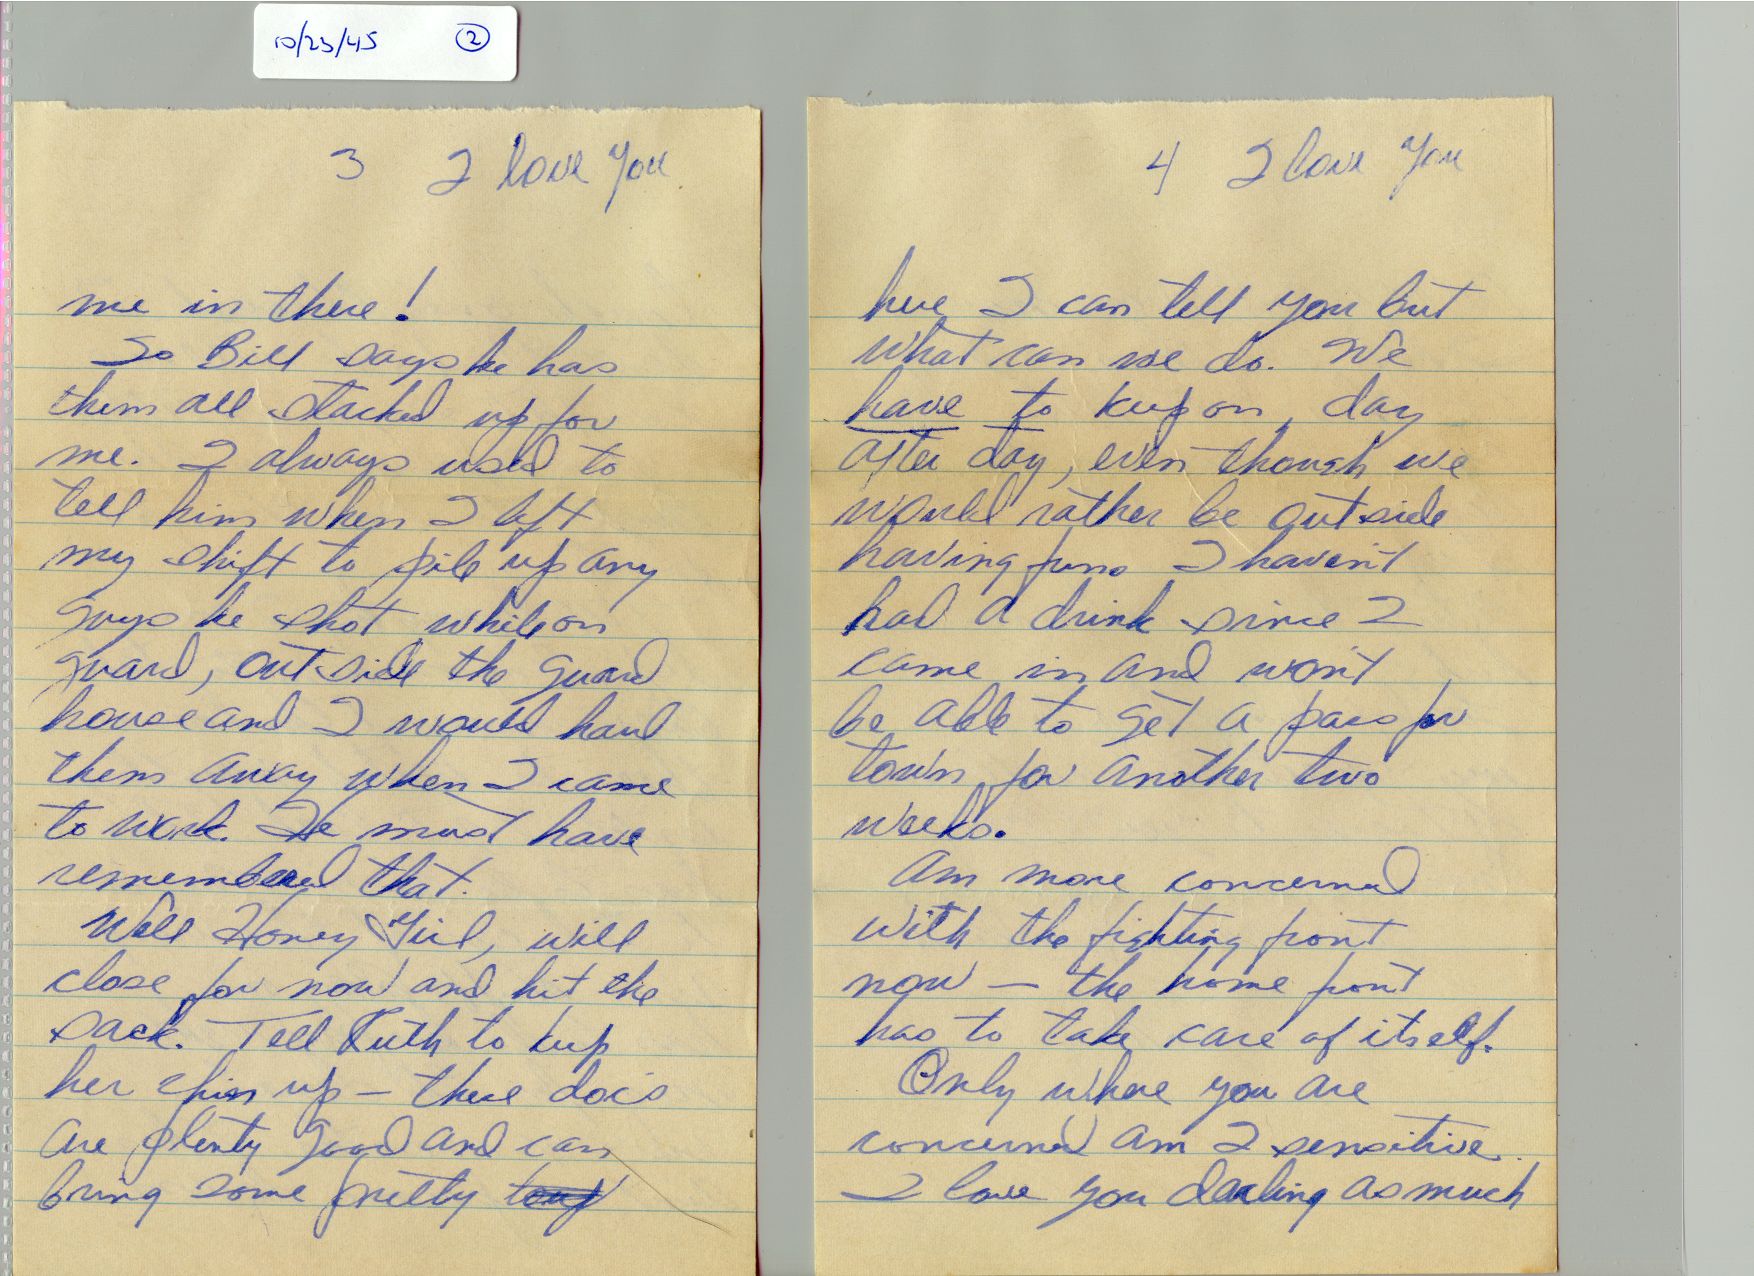 10/23/45 2
3 I love You
me in there!
So Bill says he has
them all stacked up for
me. I always used to
tell him when I left
my shift to pile up any
guys he shot while on
guard, outside the guard
house and I would haul
them away when I came
to work. He must have
remembered that.
Well Honey Girl, will
close for now and hit the
sack. Tell Ruth to keep
her chin up — these docs
are plenty good and can
bring some pretty
4 I love You
here I can tell you but
what can we do. We
have to keep on, day
after day, even though we
would rather be outside
having fun. I haven't
had a drink since I
came in and won't
be able to get a pass for
town for another two
weeks.
Am more concerned
with the fighting front
now — the home front
has to take care of itself.
Only where you are
concerned am I sensitive.
I love you darling as much